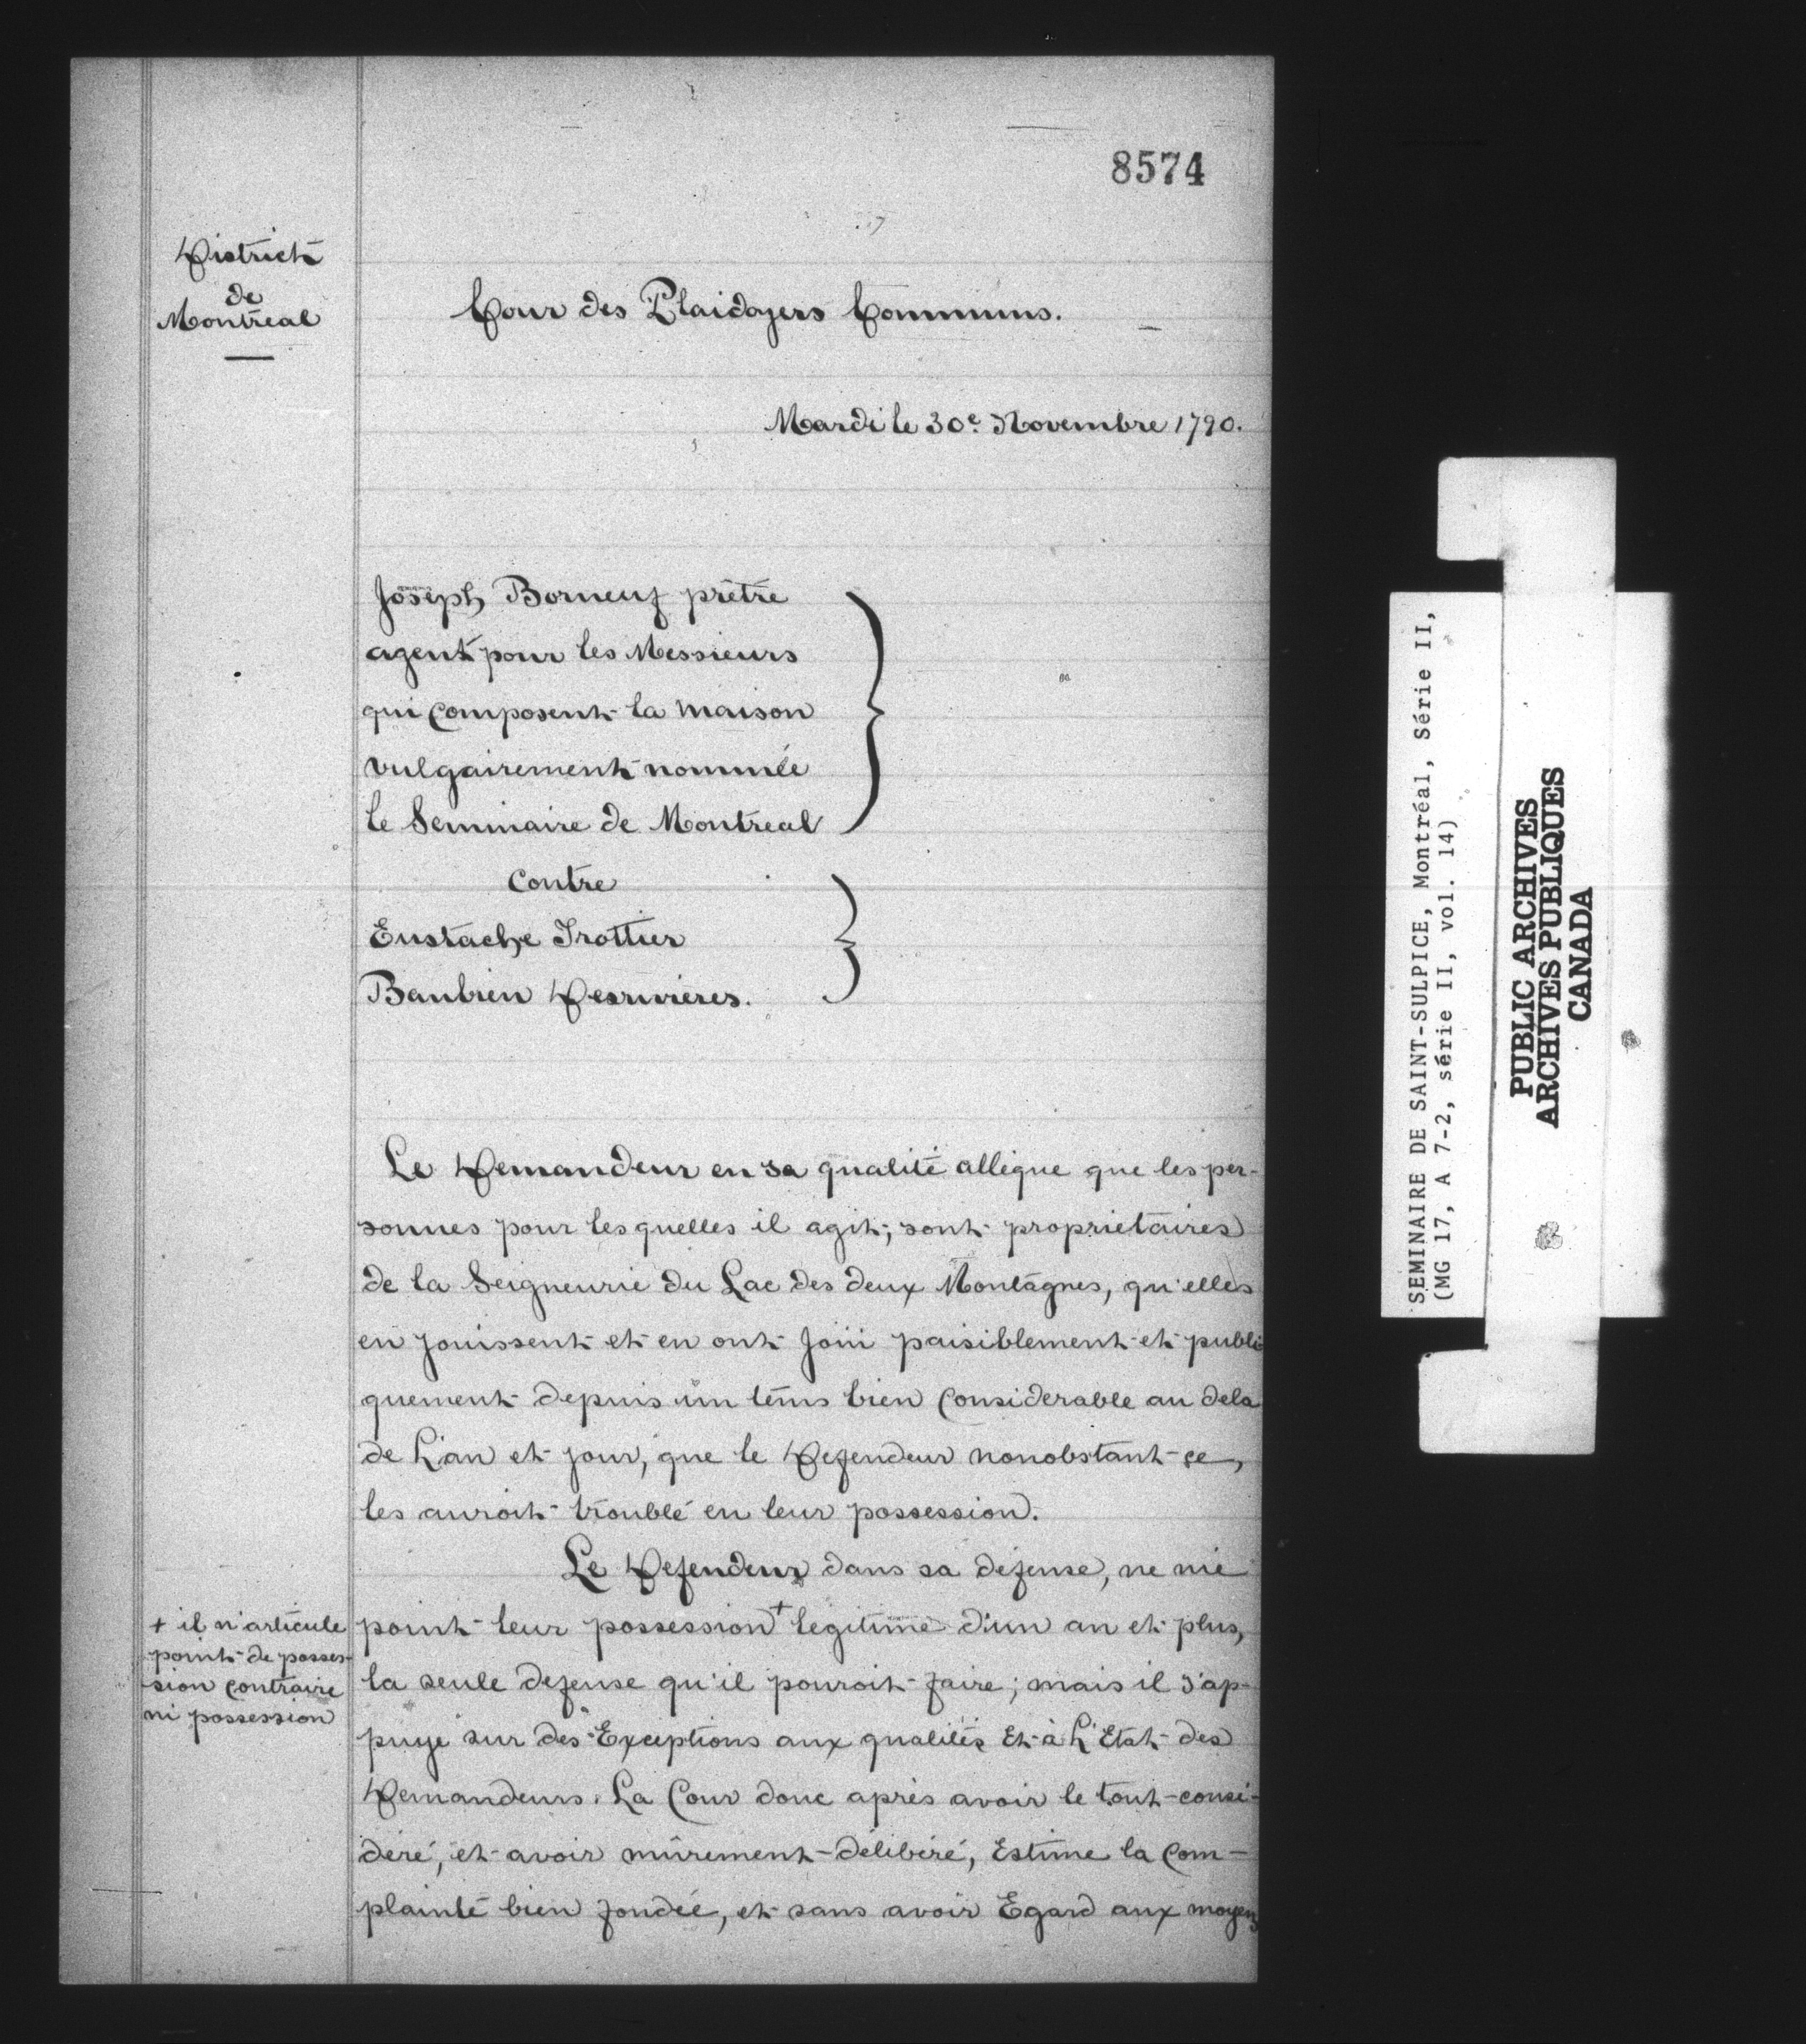 8574
District
de
Montreal
Cour des Plaidoyers Communs.
Mardi le 30e. Novembre 1790.
Joseph Borneuf prêtre
agent pour les Messieurs
qui composent la maison
vulgairement nommée
le Seminaire de Montreal
contre
Eustache Trottier
Baubien Desrivieres.
Le Demandeur en sa qualité allègue que les per-
sonnes pour lesquelles il agit, sont proprietaires
de la Seigneurie du Lac des deux Montagnes, qu'elles
en jouissent et en ont joüi paisiblement et publi
quement depuis un tems bien considerable au dela
de L'an et jour, que le Defendeur nonobstant ce,
les auroit troublé en leur possession.
Le Defendeur dans sa défense, ne nie
point leur possession + legitime d'un an et plus,
+ il n'articule
point de posses-
sion contraire
ni possession
la seule defense qu'il pouroit faire; mais il s'ap-
puye sur des Exceptions aux qualités Et à L'Etat des
Demandeurs. La Cour donc après avoir le tout consi-
déré, et avoir mûrement délibéré, Estime la Com-
plainte bien fondée, et sans avoir Egard aux moyens
SEMINAIRE DE SAINT-SULPICE, Montréal, Série II,
(MG 17, A 7-2, série II, vol. 14)
PUBLIC ARCHIVES
ARCHIVES PUBLIQUES
CANADA